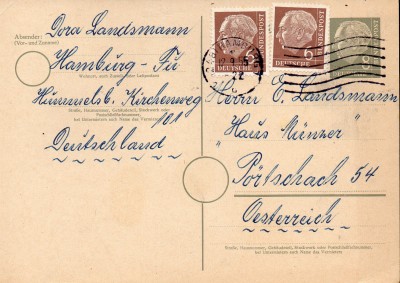 Absender:
(Vor- und Zuname)
Dora Landsmann
Hamburg - Fu
Wohnort, auch Zustell- oder Leitpostamt
Hummelsb. Kirchenweg
Straße, Hausnummer, Gebäudeteil, Stockwerk oder
Postschließfachnummer,
bei Untermietern auch Name des Vermieters
101
Deutschland
DEUTSCHE BUNDESPOST
6
DEUTSCHE BUNDESPOST
6
Herrn E. Landsmann
"Haus Münzer"
Pörtschach 54
Oesterreich
Straße, Hausnummer, Gebäudeteil, Stockwerk oder Postschließfachnummer,
bei Untermietern auch Name des Vermieters